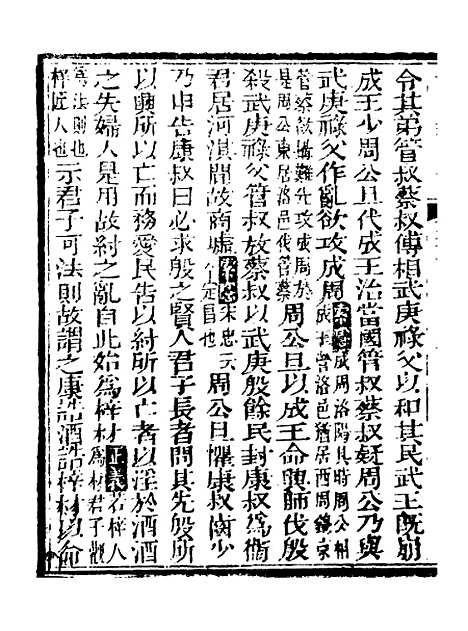 令其弟管叔蔡叔傅相武庚祿父以和其民武王既崩
成王少周公旦代成王治當國管叔蔡叔疑周公乃與
武庚祿父作亂欲攻成周索隱成周洛陽其時周公相
成王營洛邑猶居西周鎬京
管蔡欲搆難先攻成周於
是周公東居洛邑伐管蔡周公旦以成王命興師伐殷
殺武庚祿父管叔放蔡叔以武庚殷餘民封康叔爲衛
君居河淇間故商墟索隱宋忠云
今定昌也周公旦懼康叔齒少
乃申告康叔曰必求殷之賢人君子長者問其先殷所
以興所以亡而務愛民告以紂所以亡者以淫於酒酒
之失婦人是用故紂之亂自此始爲梓材正義若梓人
爲材君子觀
爲法則也
梓匠人也示君子可法則故謂之康誥酒誥梓材以命